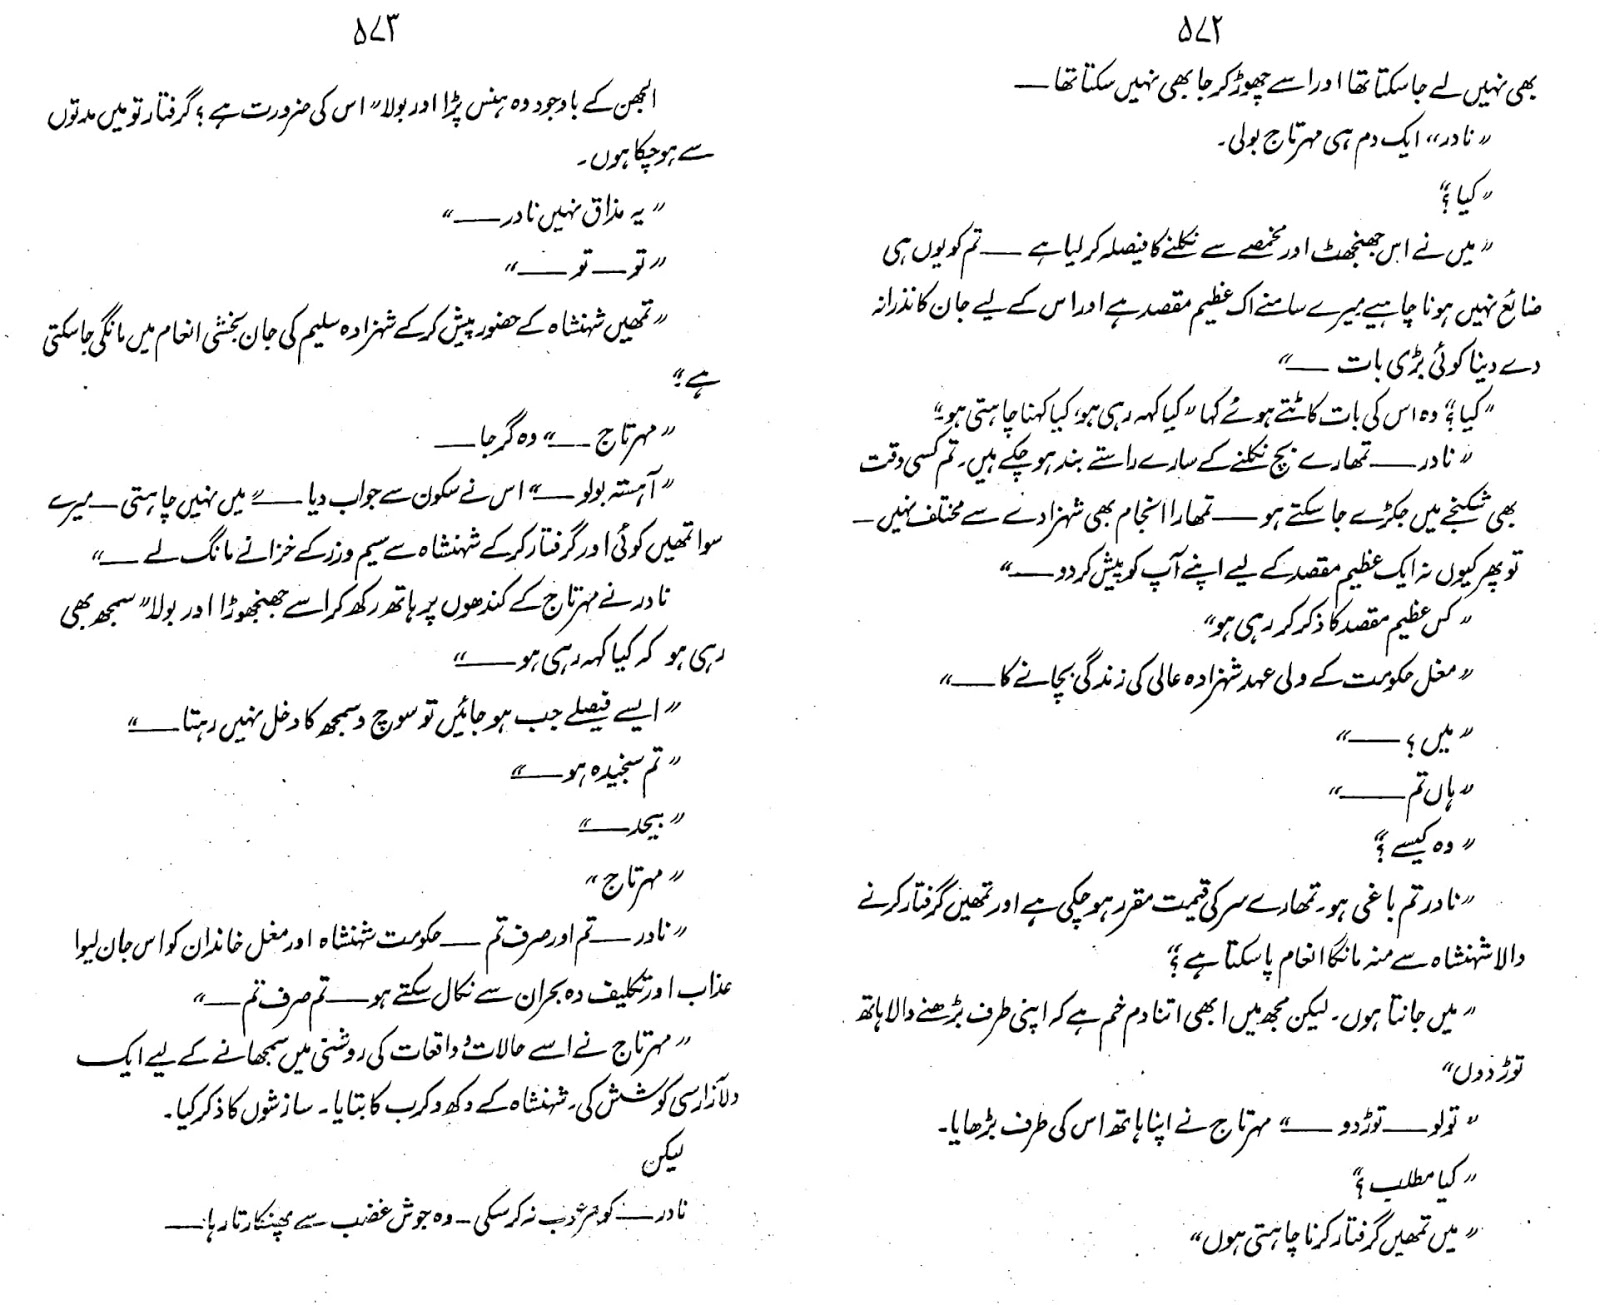 ۵۷۲
بھی نہیں لے جا سکتا تھا اور اسے چھوڑ کر جا بھی نہیں سکتا تھا ——
”نادر“ ایک دم ہی مہر تاج بولی۔
”کیا؟“
”میں نے اس جھنجھٹ اور مخمصے سے نکلنے کا فیصلہ کر لیا ہے —— تم کو یوں ہی
ضائع نہیں ہونا چاہیے میرے سامنے اک عظیم مقصد ہے اور اس کے لیے جان کا نذرانہ
دے دینا کوئی بڑی بات ——“
”کیا؟“ وہ اس کی بات کاٹتے ہوئے کہا ”کیا کہہ رہی ہو، کیا کہنا چاہتی ہو۔“
”نادر —— تمھارے بچ نکلنے کے سارے راستے بند ہو چکے ہیں۔ تم کسی وقت
بھی شکنجے میں جکڑے جا سکتے ہو —— تمھارا انجام بھی شہزادے سے مختلف نہیں —
تو پھر کیوں نہ ایک عظیم مقصد کے لیے اپنے آپ کو پیش کر دو ——“
”کس عظیم مقصد کا ذکر کر رہی ہو“
”مغل حکومت کے ولی عہد شہزادہ عالی کی زندگی بچانے کا ——“
”میں؟ ——“
”ہاں تم ——“
”وہ کیسے؟“
”نادر تم باغی ہو۔ تمھارے سر کی قیمت مقرر ہو چکی ہے اور تمھیں گرفتار کرنے
والا شہنشاہ سے منہ مانگا انعام پا سکتا ہے؟“
”میں جانتا ہوں۔ لیکن مجھ میں ابھی اتنا دم خم ہے کہ اپنی طرف بڑھنے والا ہاتھ
توڑ دوں“
”تو لو —— توڑ دو ——“ مہر تاج نے اپنا ہاتھ اس کی طرف بڑھایا۔
”کیا مطلب؟“
”میں تمھیں گرفتار کرنا چاہتی ہوں“
۵۷۳
الجھن کے باوجود وہ ہنس پڑا اور بولا ”اس کی ضرورت ہے؟ گرفتار تو میں مدتوں
سے ہو چکا ہوں۔
”یہ مذاق نہیں نادر ——“
”تو —— تو ——“
”تمھیں شہنشاہ کے حضور پیش کر کے شہزادہ سلیم کی جان بخشی انعام میں مانگی جا سکتی
ہے۔“
”مہر تاج ——“ وہ گرجا ——
”آہستہ بولو ——“ اس نے سکون سے جواب دیا ——“ میں نہیں چاہتی — میرے
سوا تمھیں کوئی اور گرفتار کر کے شہنشاہ سے سیم و زر کے خزانے مانگ لے ——“
نادر نے مہر تاج کے کندھوں پر ہاتھ رکھ کر اسے جھنجھوڑا اور بولا ”سمجھ بھی
رہی ہو کہ کیا کہہ رہی ہو ——“
”ایسے فیصلے جب ہو جائیں تو سوچ و سمجھ کا دخل نہیں رہتا ——“
”تم سنجیدہ ہو ——“
”بیحد ——“
”مہر تاج“
”نادر —— تم اور صرف تم —— حکومت شہنشاہ اور مغل خاندان کو اس جان لیوا
عذاب اور تکلیف دہ بحران سے نکال سکتے ہو —— تم صرف تم ——“
”مہر تاج نے اسے حالات و واقعات کی روشنی میں سمجھانے کے لیے ایک
دلآزار سی کوشش کی۔ شہنشاہ کے دکھ و کرب کا بتایا۔ سازشوں کا ذکر کیا۔
لیکن
نادر —— کو مرعوب نہ کر سکی — وہ جوش غضب سے پھنکارتا رہا ——